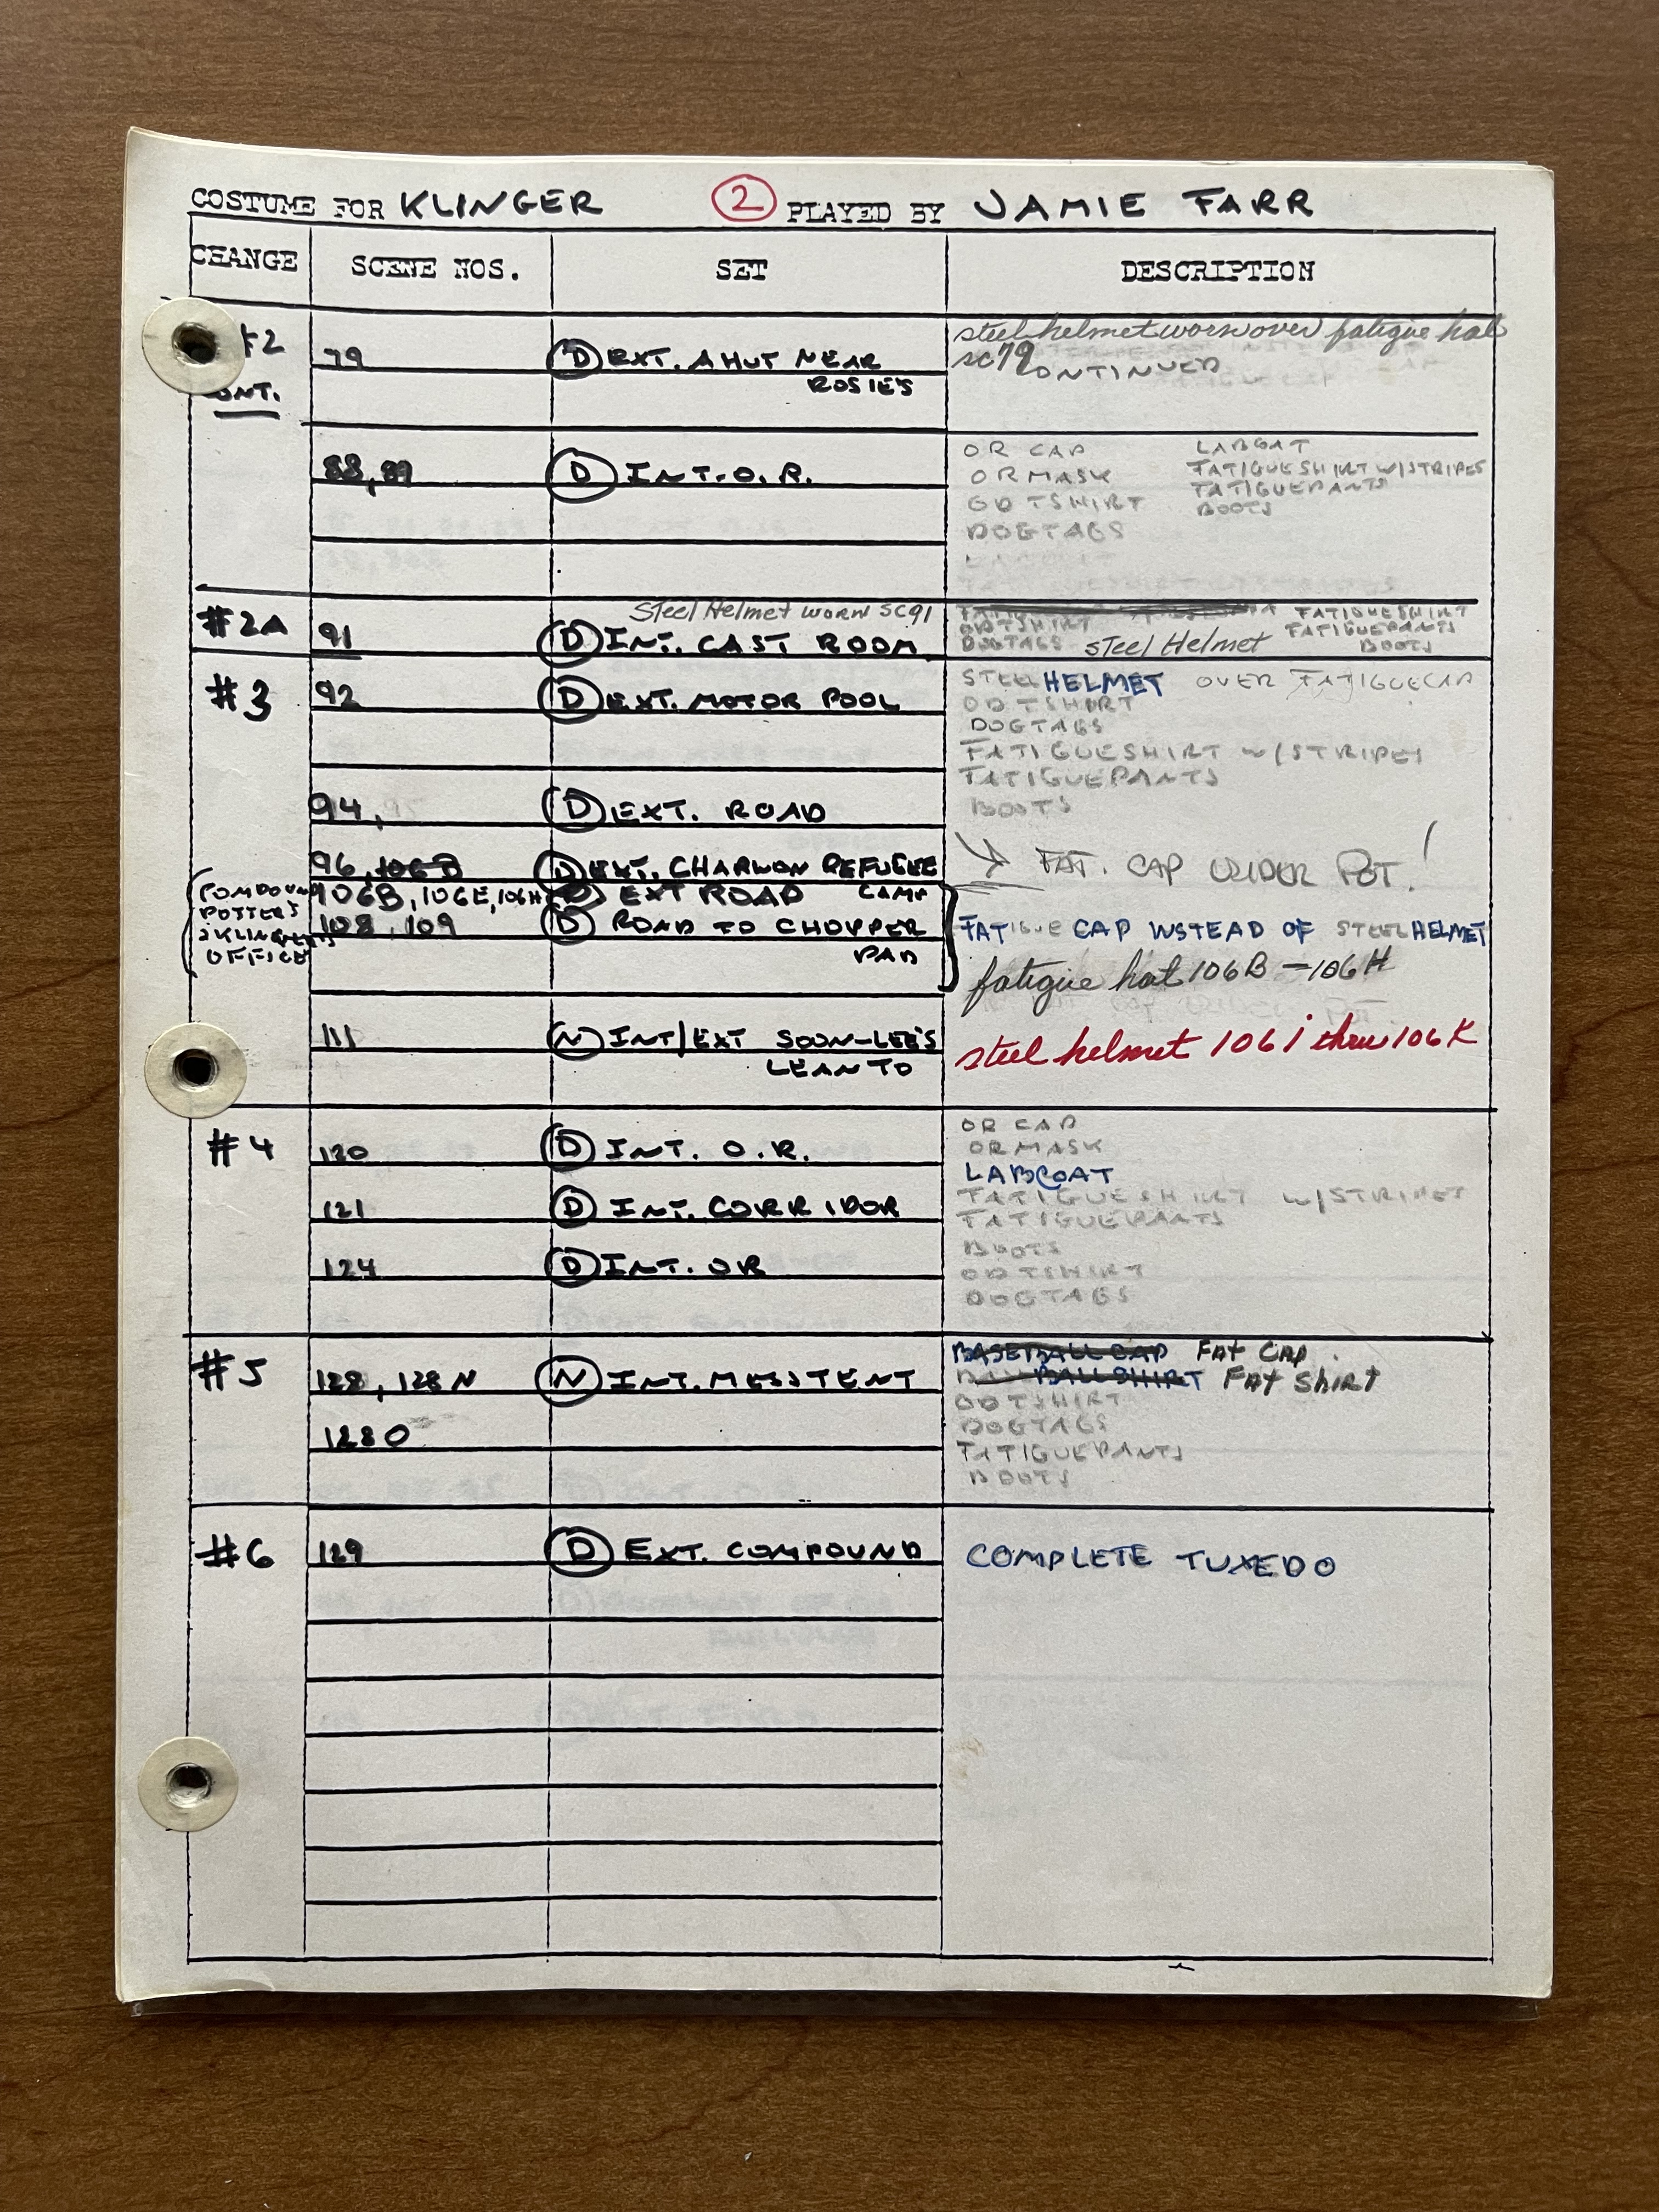 COSTUME FOR KLINGER 2 PLAYED BY JAMIE FARR
CHANGE SCENE NOS. SET DESCRIPTION
#2 79 D EXT. A HUT NEAR ROSIE'S steel helmet worn over fatigue hat
ONT. sc 79 CONTINUED
88, 89 D INT. O.R. OR CAP LABCOAT
OR MASK FATIGUE SHIRT W/STRIPES
OD TSHIRT FATIGUEPANTS
DOGTAGS BOOTS
Steel Helmet worn SC91
#2A 91 D INT. CAST ROOM FATIGUESHIRT
OD TSHIRT FATIGUEPANTS
DOGTAGS steel Helmet BOOTS
#3 92 D EXT. MOTOR POOL STEEL HELMET OVER FATIGUECAP
OD TSHIRT
DOGTAGS
FATIGUESHIRT W/STRIPES
FATIGUEPANTS
94, D EXT. ROAD BOOTS
96, 106D D EXT. CHARWON REFUGEE CAMP FAT. CAP UNDER POT!
106B, 106E, 106H D EXT ROAD
COMPOUND
POTTER'S
& KLINGER'S
OFFICE
108, 109 D ROAD TO CHOPPER PAD FATIGUE CAP INSTEAD OF STEEL HELMET
fatigue hat 106B – 106H
111 N INT/EXT SOON-LEE'S LEAN TO steel helmet 106i thru 106K
#4 120 D INT. O.R. OR CAP
OR MASK
LABCOAT
121 D INT. CORRIDOR FATIGUESHIRT W/STRIPES
FATIGUEPANTS
124 D INT. OR BOOTS
OD TSHIRT
DOGTAGS
#5 128, 128N N INT. MESSTENT BASEBALL CAP FAT CAP
BALLSHIRT FAT SHIRT
128O OD TSHIRT
DOGTAGS
FATIGUEPANTS
BOOTS
#6 129 D EXT. COMPOUND COMPLETE TUXEDO